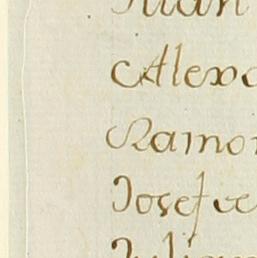 Juan
Alexo
Ramon
Josef de